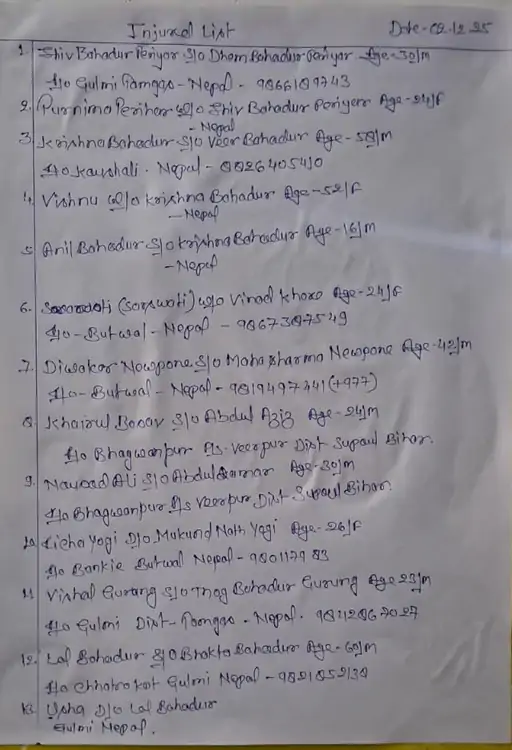 Injured List Date-02.12.25
1. Shiv Bahadur Periyar S/o Dham Bahadur Periyar Age-30/M
R/o Gulmi Tamgas-Nepal-
2. Purnima Perihar W/o Shiv Bahadur Periyar Age-24/F
-Nepal
3. Krishna Bahadur S/o Veer Bahadur Age-58/M
R/o Kaushali. Nepal-
4. Vishnu W/o Krishna Bahadur Age-52/F
-Nepal
5. Anil Bahadur S/o Krishna Bahadur Age-16/M
-Nepal
6. (Sarswati) W/o Vinod Age-24/F
R/o-Butwal-Nepal-
7. Diwakar Newpane S/o Newpane Age-42/M
R/o-Butwal-Nepal- (+977)
8. Khairul S/o Abdul Aziz Age-24/M
R/o Bhagwanpur Ps-Veerpur Dist Supaul Bihar.
9. Ali S/o Abdul Age-30/M
R/o Bhagwanpur Ps Veerpur Dist Supaul Bihar.
10. Yogi D/o Mukund Nath Yogi Age-26/F
R/o Bankie Butwal Nepal-
11. Vishal Gurung S/o Bahadur Gurung Age 23/M
R/o Gulmi Dist-Tamgas-Nepal.
12. Lal Bahadur S/o Bhakta Bahadur Age-60/M
R/o Chhatrakot Gulmi Nepal-
13. Usha D/o Lal Bahadur
Gulmi Nepal.